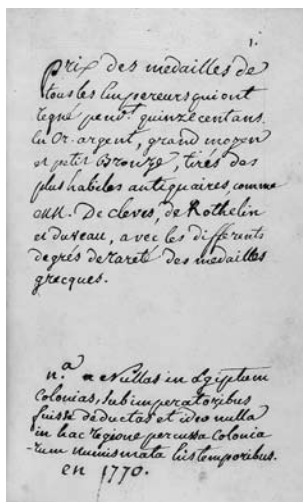 1.
Prix des medailles de
tous les Empereurs qui ont
regné pend.t quinze cent ans.
En Or. argent, grand moyen
et petit Bronze, tirés des
plus habiles antiquaires, comme
MM. De cleves, de Rothelin
et duveau, avec les differents
degrés de rareté des medailles
grecques.
n.a Nullas in Ægiptum
Colonias, sub imperatoribus
fuisse deductas et ideo nulla
in hac regione percussa colonia
-rum numismata his temporibus.
en 1770.